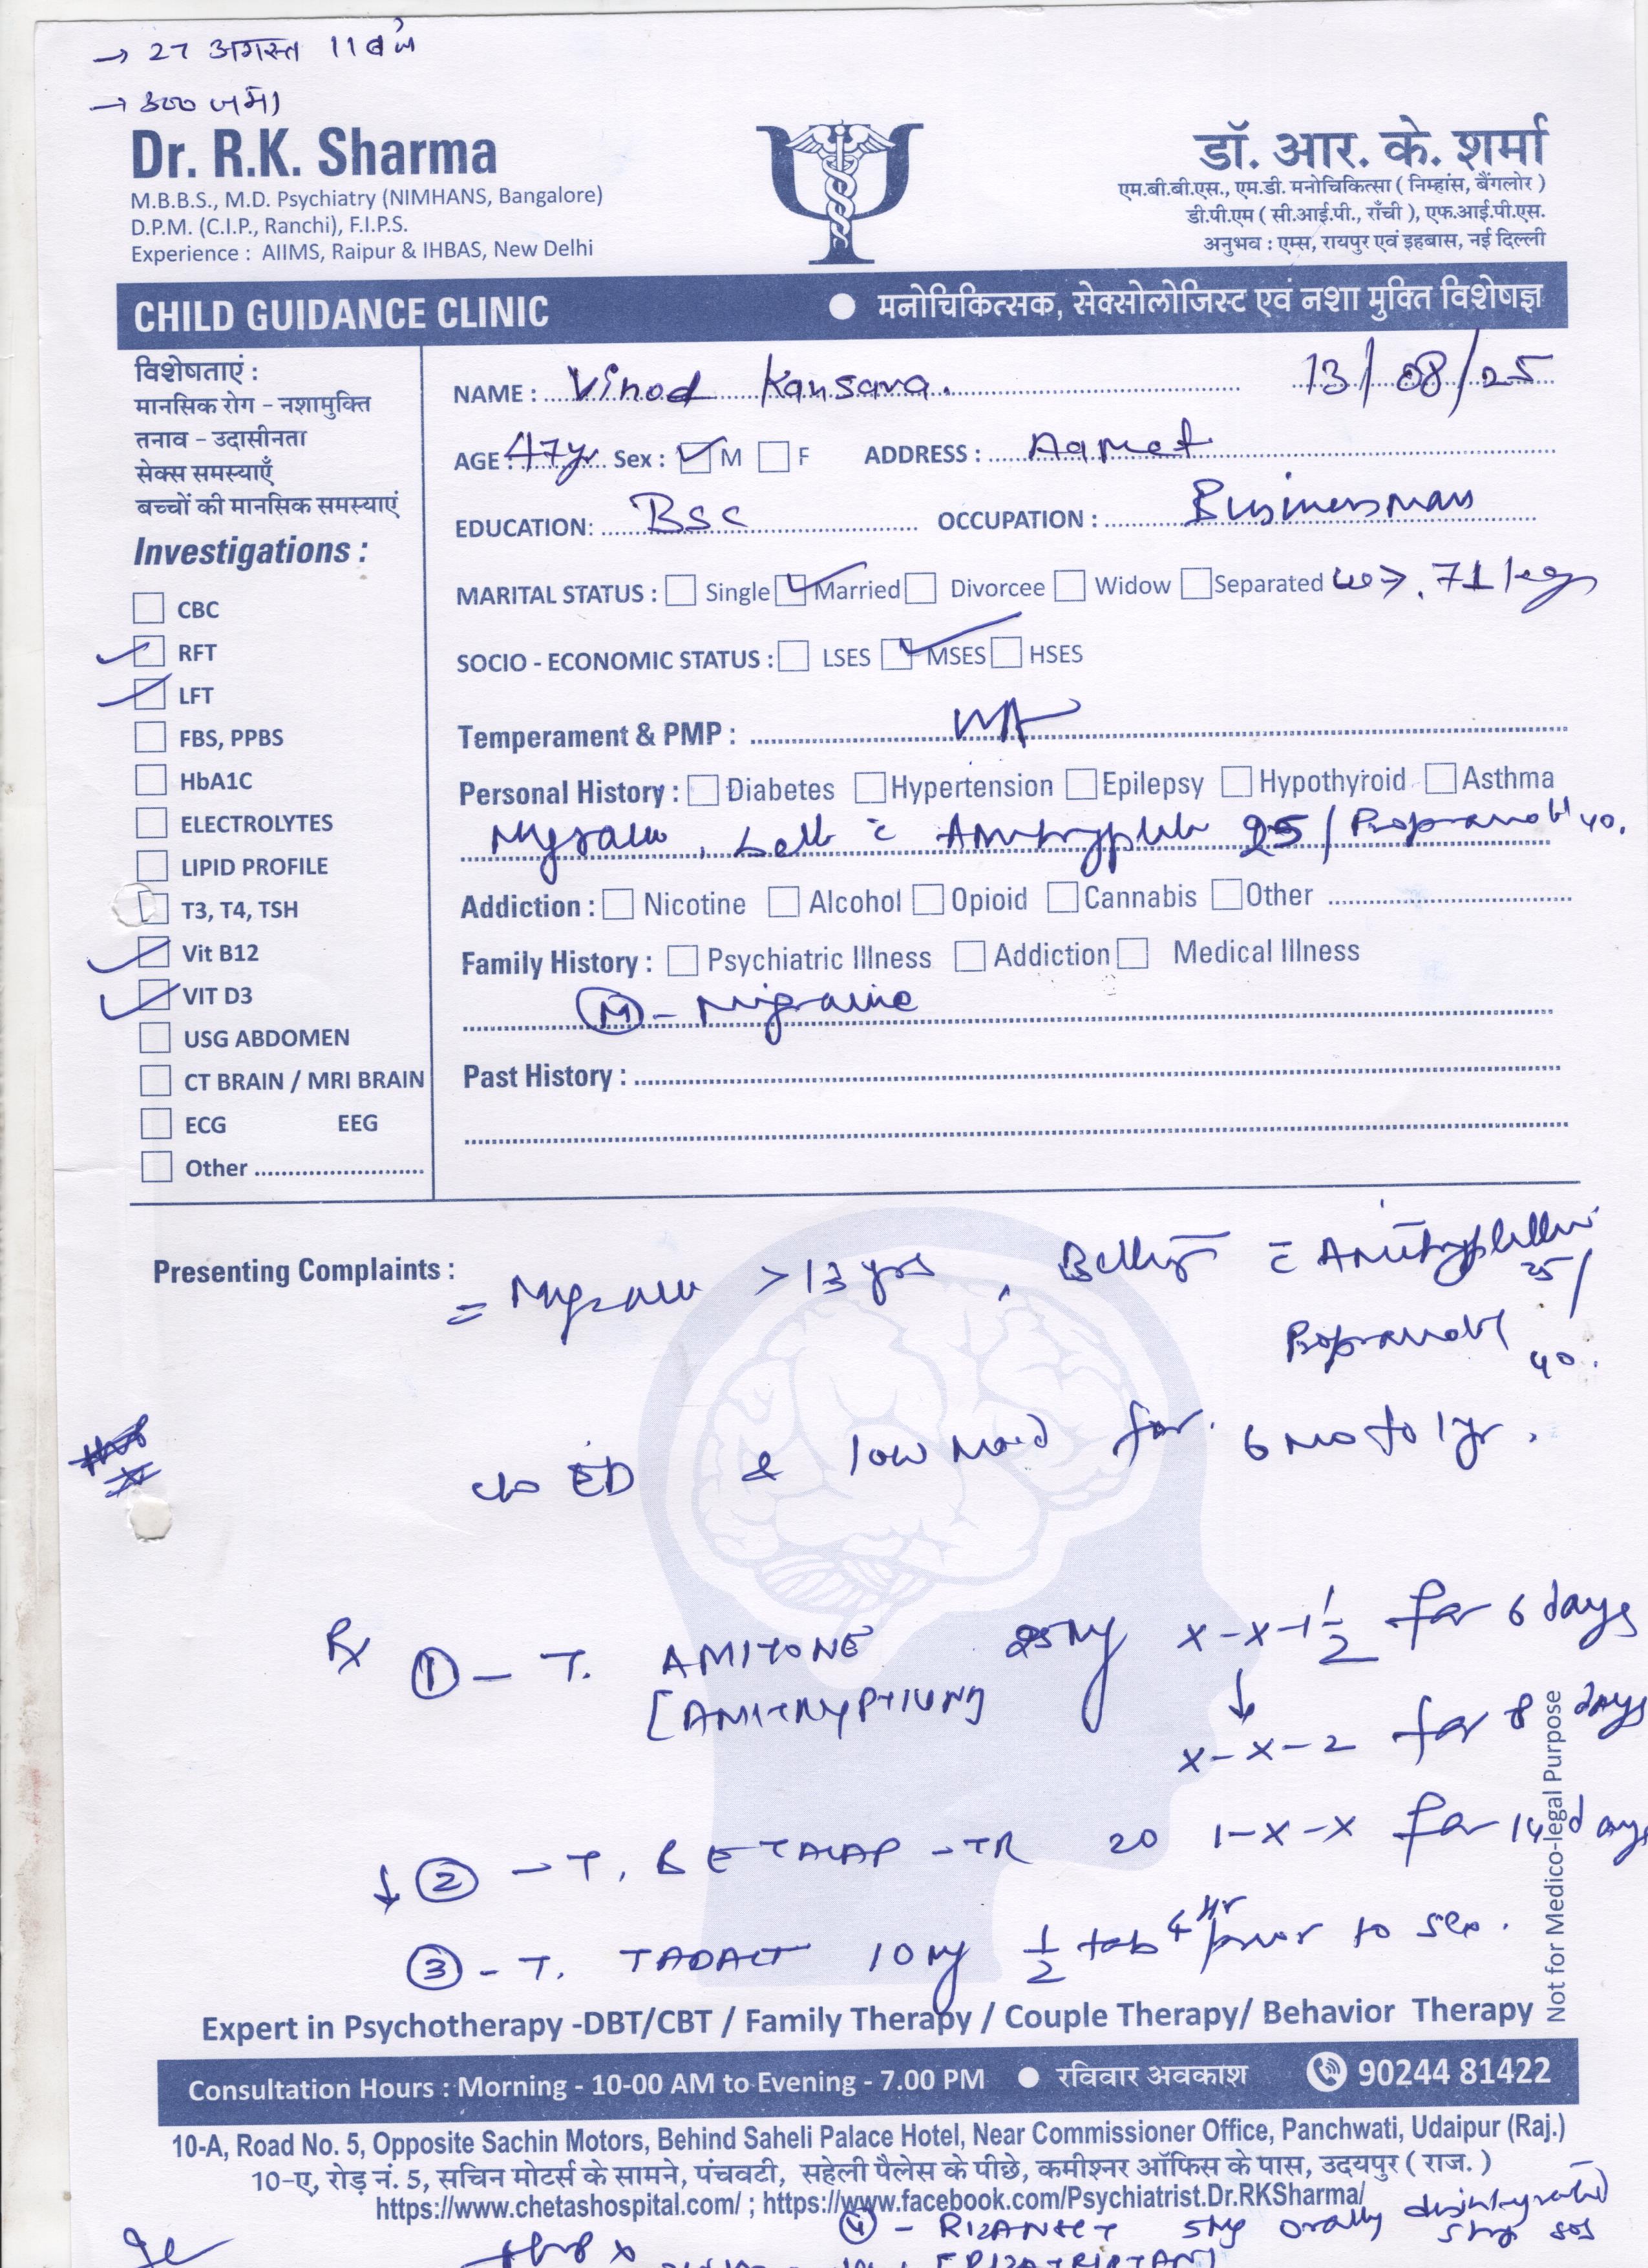 → 27 अगस्त 11 बजे
→ 300 जमा
Dr. R.K. Sharma
M.B.B.S., M.D. Psychiatry (NIMHANS, Bangalore)
D.P.M. (C.I.P., Ranchi), F.I.P.S.
Experience : AIIMS, Raipur & IHBAS, New Delhi
डॉ. आर. के. शर्मा
एम.बी.बी.एस., एम.डी. मनोचिकित्सा ( निम्हांस, बैंगलोर )
डी.पी.एम ( सी.आई.पी., राँची ), एफ.आई.पी.एस.
अनुभव : एम्स, रायपुर एवं इहबास, नई दिल्ली
CHILD GUIDANCE CLINIC
● मनोचिकित्सक, सेक्सोलोजिस्ट एवं नशा मुक्ति विशेषज्ञ
विशेषताएं :
मानसिक रोग – नशामुक्ति
तनाव – उदासीनता
सेक्स समस्याएँ
बच्चों की मानसिक समस्याएं
Investigations :
CBC
RFT
LFT
FBS, PPBS
HbA1C
ELECTROLYTES
LIPID PROFILE
T3, T4, TSH
Vit B12
VIT D3
USG ABDOMEN
CT BRAIN / MRI BRAIN
ECG EEG
Other
NAME : Vinod Kansara. 13/08/25
AGE : 47yr Sex : M F ADDRESS : Aamet
EDUCATION: BSc OCCUPATION : Businessman
MARITAL STATUS : Single Married Divorcee Widow Separated 71 kg
SOCIO - ECONOMIC STATUS : LSES MSES HSES
Temperament & PMP :
Personal History : Diabetes Hypertension Epilepsy Hypothyroid Asthma
Migraine, 25 / Propranolol 40.
Addiction : Nicotine Alcohol Opioid Cannabis Other
Family History : Psychiatric Illness Addiction Medical Illness
M - Migraine
Past History :
Presenting Complaints :
= Migraine > 13 yrs, Amitryptilin 25 /
Propranolol 40.
c/o ED & low mood for 6 mo to 1yr.
Rx ① - T. AMITONE 25mg x-x-1½ for 6 days
[AMITRYPTILIN]
↓
x-x-2 for 8 days
↓ ② - T. BETACAP -TR 20 1-x-x for 14 days
③ - T. TADACT 10mg ½ tab 4 Hr prior to sex.
Not for Medico-legal Purpose
Expert in Psychotherapy -DBT/CBT / Family Therapy / Couple Therapy/ Behavior Therapy
Consultation Hours : Morning - 10-00 AM to Evening - 7.00 PM ● रविवार अवकाश 90244 81422
10-A, Road No. 5, Opposite Sachin Motors, Behind Saheli Palace Hotel, Near Commissioner Office, Panchwati, Udaipur (Raj.)
10-ए, रोड़ नं. 5, सचिन मोटर्स के सामने, पंचवटी, सहेली पैलेस के पीछे, कमीश्नर ऑफिस के पास, उदयपुर ( राज. )
https://www.chetashospital.com/ ; https://www.facebook.com/Psychiatrist.Dr.RKSharma/
④ - RIZANEXT 5mg orally disintegrated strip sos